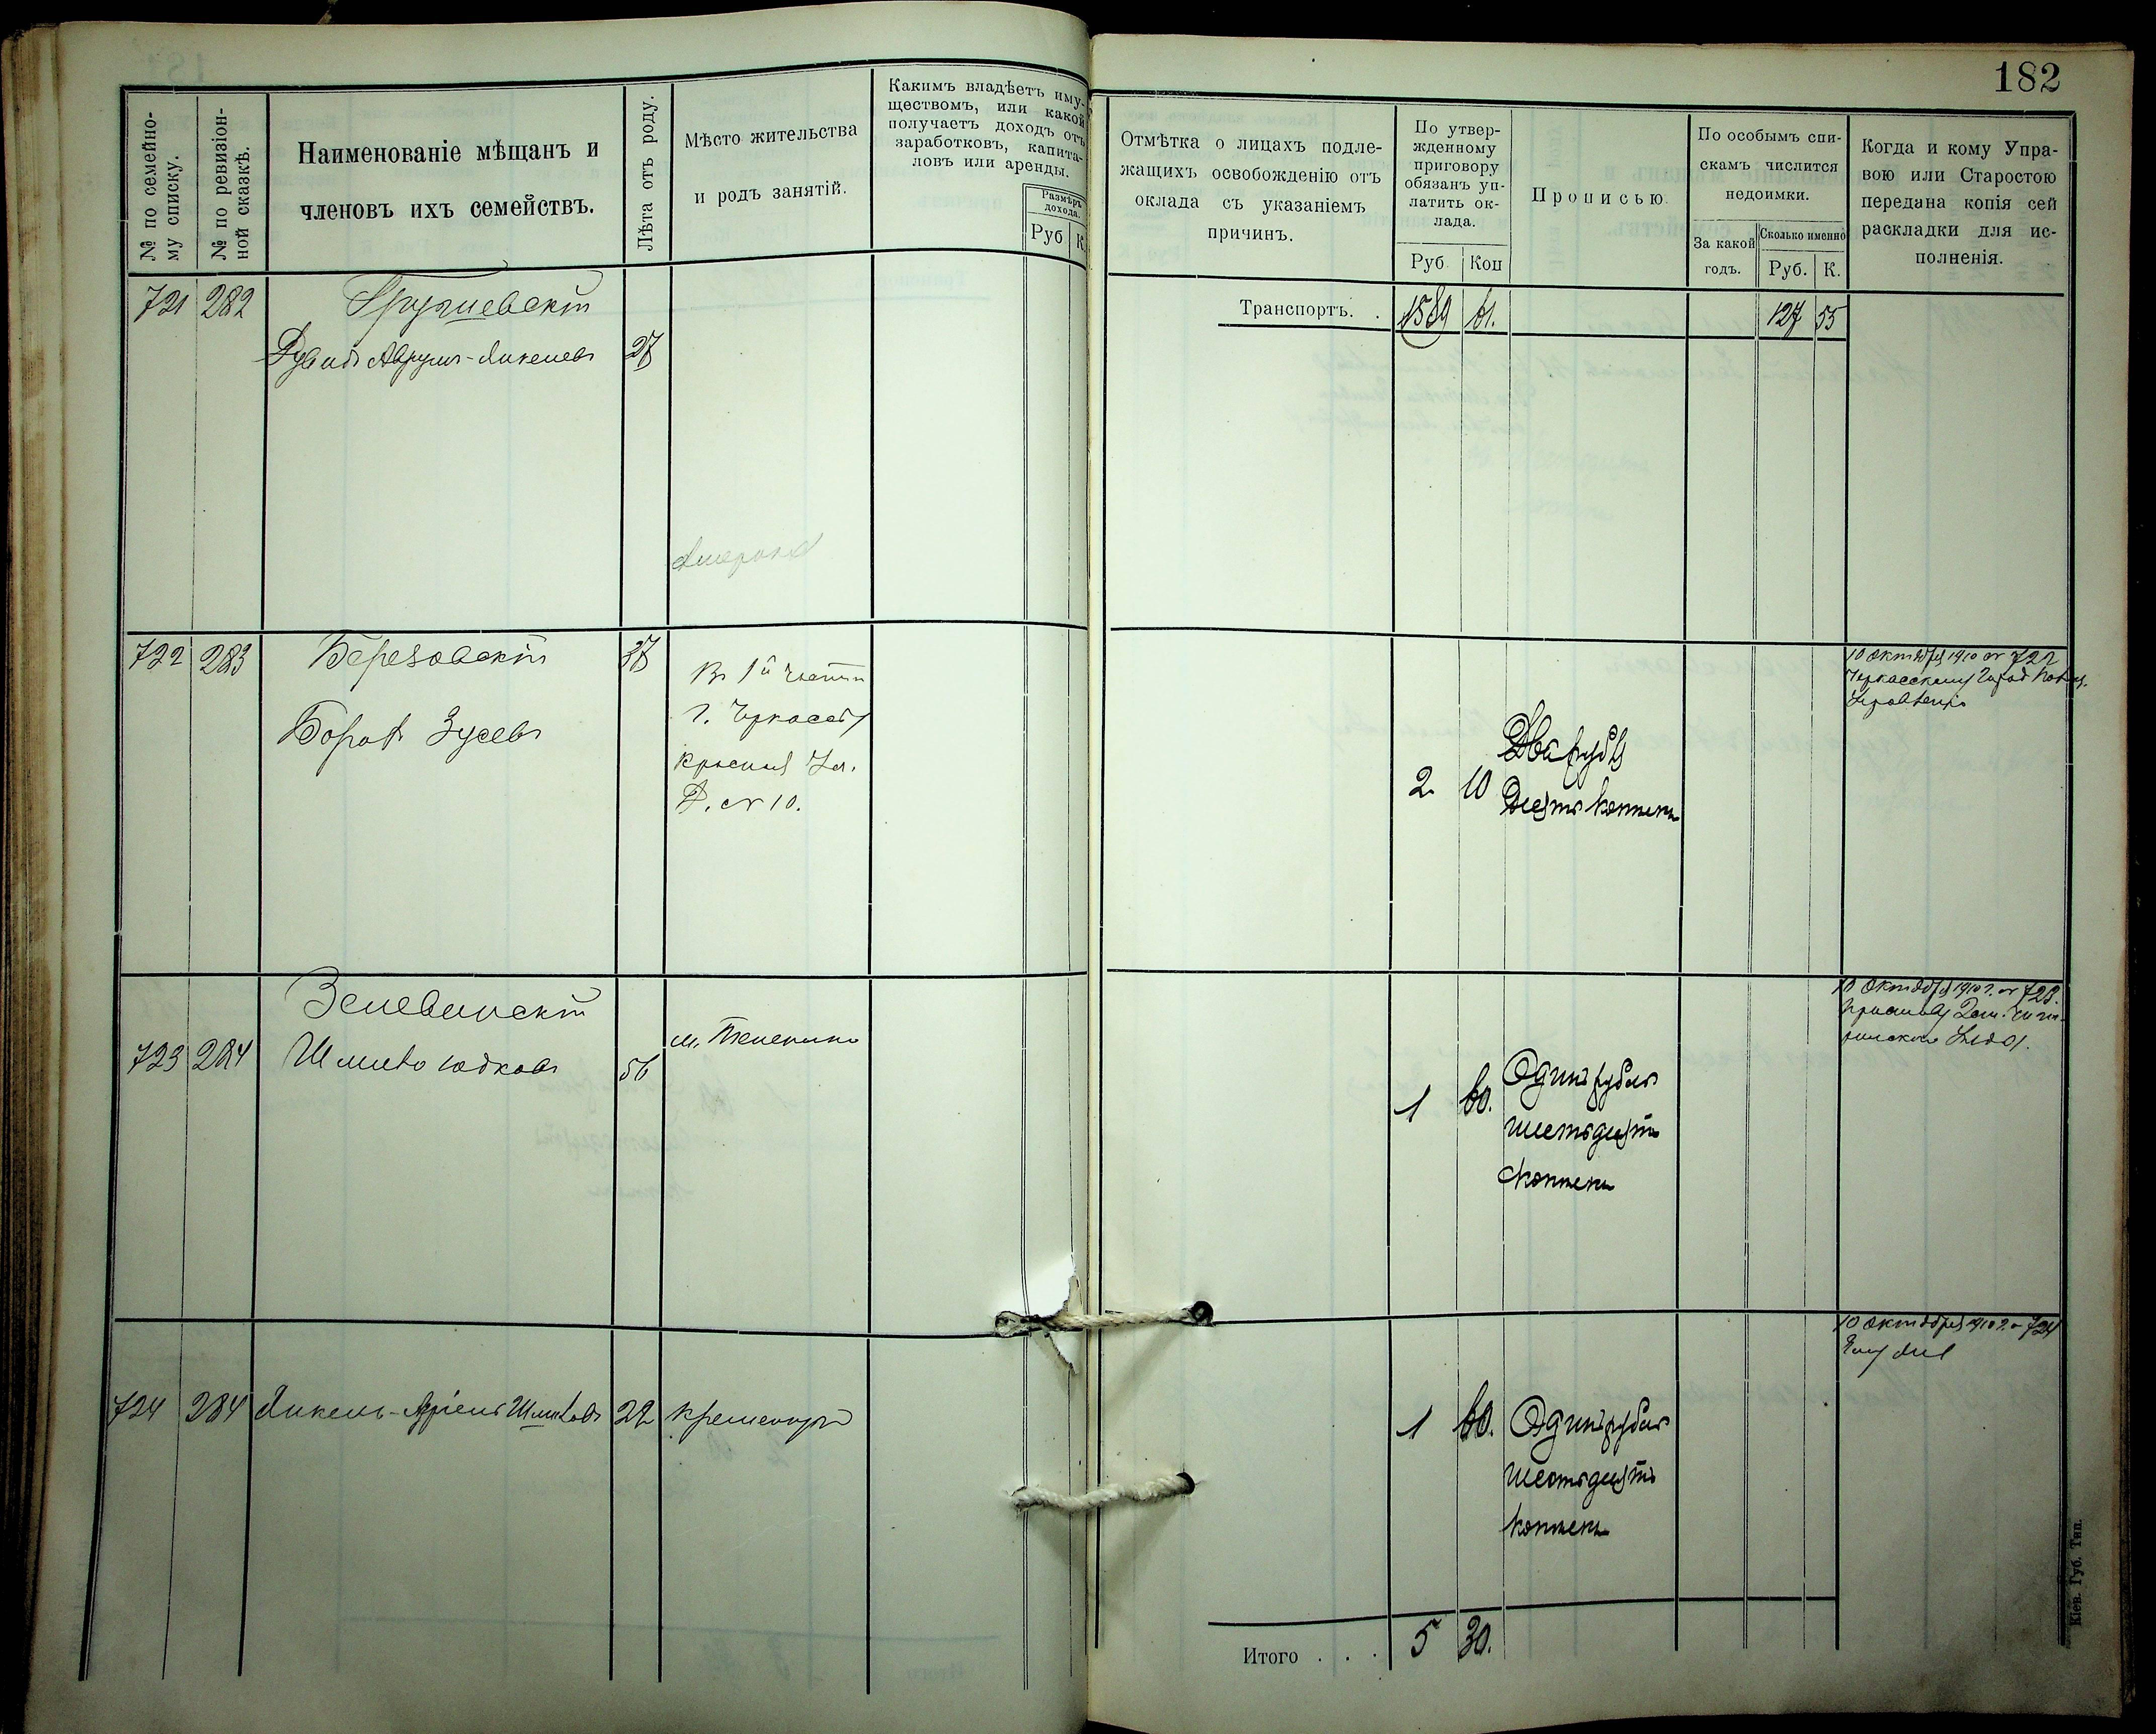 182
№ по семейно-
му списку.
№ по ревизіон-
ной сказкѣ.
Наименованіе мѣщанъ и
членовъ ихъ семействъ.
Лѣта отъ роду.
Мѣсто жительства
и родъ занятій.
Какимъ владѣетъ иму-
ществомъ, или какой
получаетъ доходъ отъ
заработковъ, капита-
ловъ или аренды.
Размѣръ
дохода.
Руб К.
Отмѣтка о лицахъ подле-
жащихъ освобожденію отъ
оклада съ указаніемъ
причинъ.
По утвер-
жденному
приговору
обязанъ уп-
латить ок-
лада.
Руб Коп
Прописью.
По особымъ спи-
скамъ числится
недоимки.
За какой
годъ.
Сколько именно
Руб. К.
Когда и кому Упра-
вою или Старостою
передана копія сей
раскладки для ис-
полненія.
Транспортъ. . 1589 61. 127 55
721 282
27
722 283 Березовскій 37
Зусевъ
г. Черкассы
Красная Ул.
Д. № 10.
2 10 Два рубля
Десять копѣекъ
10 Октября 1910 № 722
723 284 56
1 60. Одинъ рубль
шестьдесятъ
копѣекъ
10 Октября 1910 г. № 723.
724 284 22 Кременчугъ
1 60. Одинъ рубль
шестьдесятъ
копѣекъ
10 Октября 1910 г. № 724
Итого . . . 5 30.
Кіев. Губ. Тип.